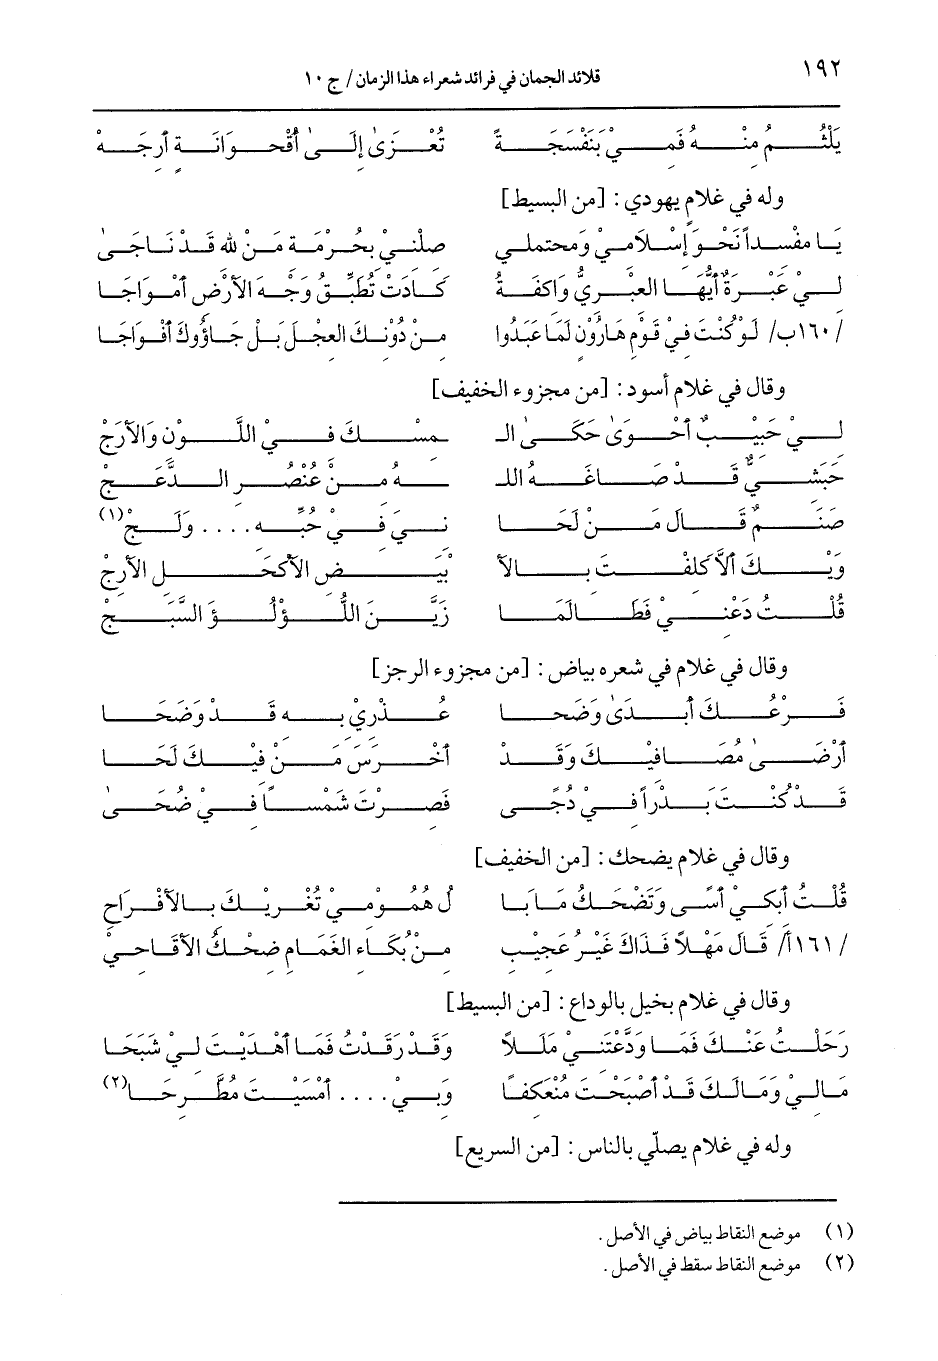 ١٩٢
قلائد الجمان في فرائد شعراء هذا الزمان / ج ١٠
يَلْثُمُ مِنْهُ فَمِيْ بَنَفْسَجَةً تُعْزَىٰ إِلَىٰ أُقْحُوَانَةٍ أرِجَهْ
وله في غلام يهودي : [من البسيط]
يَا مفْسِداً نَحْوَ إسْلَامِيْ وَمحتملي صلْنِيْ بِحُرْمَةِ مَنْ للهِ قَدْ نَاجَىٰ
لِيْ عَبْرَةٌ أيُّهَا العِبْرِيُّ وَاكفَةٌ كَادَتْ تُطَبِّقُ وَجْهَ الأَرْضِ أمْوَاجَا
/١٦٠ب/ لَوْ كُنْتَ فِيْ قَوْمِ هَارُوْنٍ لَمَا عَبَدُوا مِنْ دُوْنِكَ العِجْلَ بَلْ جَاؤُوكَ أفْوَاجَا
وقال في غلام أسود : [من مجزوء الخفيف]
لِيْ حَبِيْبٌ أحْوَىٰ حَكَىٰ الـ ـمِسْكَ فِيْ اللَّوْنِ وَالأَرَجْ
حَبَشِيٌّ قَدْ صَاغَهُ اللـ ـهُ مِنْ عُنْصُرِ الدَّعَجْ
صَنَمٌ قَالَ مَنْ لَحَا نِيَ فِيْ حُبِّهِ .... وَلَجْ(١)
وَيْكَ ألاَّ كلفْتَ بِالأَ بْيَضِ الأَكْحَلِ الأَزِجْ
قُلْتُ دَعْنِيْ فَطَالَمَا زَيَّنَ اللُّؤْلُؤَ السَّبَجْ
وقال في غلام في شعره بياض : [من مجزوء الرجز]
فَرْعُكَ أبْدَىٰ وَضَحَا عُذْرِيْ بِهِ قَدْ وَضَحَا
أرْضَىٰ مُصَافِيْكَ وَقَدْ أخْرَسَ مَنْ فِيْكَ لَحَا
قَدْ كُنْتَ بَدْراً فِيْ دُجًى فَصِرْتَ شَمْساً فِيْ ضُحَىٰ
وقال في غلام يضحك : [من الخفيف]
قُلْتُ أبكِيْ أسًى وَتَضْحَكُ مَا بَا لُ هُمُوْمِيْ تُغْرِيْكَ بِالأَفْرَاحِ
/١٦١أ/ قَالَ مَهْلاً فَذَاكَ غَيْرُ عَجِيْبٍ مِنْ بُكَاءِ الغَمَامِ ضحْكُ الأَقَاحِيْ
وقال في غلام بخيل بالوداع : [من البسيط]
رَحَلْتُ عَنْكَ فَمَا وَدَّعْتَنِيْ مَلَلاً وَقَدْ رَقَدْتُ فَمَا أهْدَيْتَ لِيْ شَبَحَا
مَالِيْ وَمَالَكَ قَدْ أصْبَحْتَ مُنْعَكِفًا وَبِيْ .... أمْسَيْتَ مُطَّرِحَا(٢)
وله في غلام يصلّي بالناس : [من السريع]
(١) موضع النقاط بياض في الأصل .
(٢) موضع النقاط سقط في الأصل .